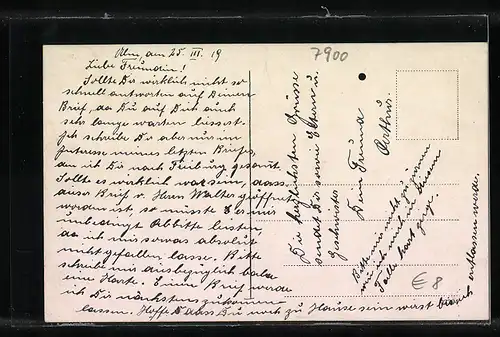 Ulm, am 25. III. 19
Liebe Freundin!
Sollte Dir wirklich nicht so
schnell antworten auf Deinen
Brief, da Du auf Dich auch
sehr lange warten liessest.
Ich schreibe Dir aber nur im
Interesse meines letzten Briefes,
den ich Dir nach Freiburg gesandt.
Sollte es wirklich wahr sein, dass
dieser Brief v. Herrn Walter geöffnet
worden ist, so müsste Er mir
unbedingt Abbitte leisten,
da ich mir sowas absolut
nicht gefallen lasse. Bitte
schreibe mir diesbezüglich balde
eine Karte. Einen Brief werde
ich Dir nächstens zukommen
lassen. Hoffe dass Du noch zu Hause sein wirst
entlassen werde.
Die herzlichsten Grüsse
sendet Dir sowie Eltern u.
Geschwister
Dein Freund
Arthur.
Bitte mir nicht zu zürnen
wenn ich mich in diesem
Falle hart zeige.
7900
€ 8